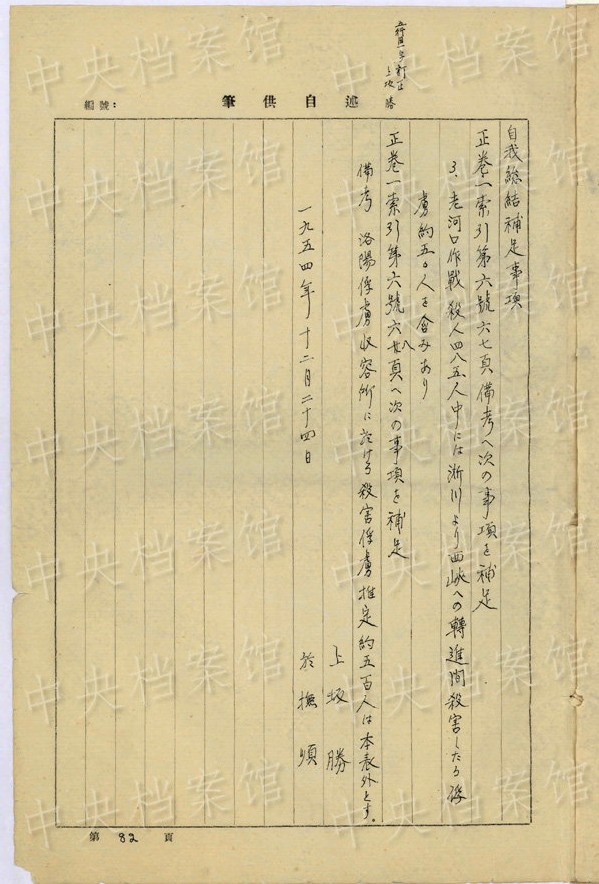 上坂 勝
編號：
筆供自述
自我総結補足事項
正巻一索引第六號六七頁備考へ次の事項を補足
3、老河口作戦殺人四八五人中には淅川より西峡への轉進間殺害したる俘
虜約五〇人を含みあり
正巻一索引第六號六八頁へ次の事項を補足
備考 洛陽俘虜収容所に於ける殺害俘虜推定約五百人は本表外とす。
上坂勝
一九五四年十二月二十四日
於撫順
第 82 頁
中央档案馆